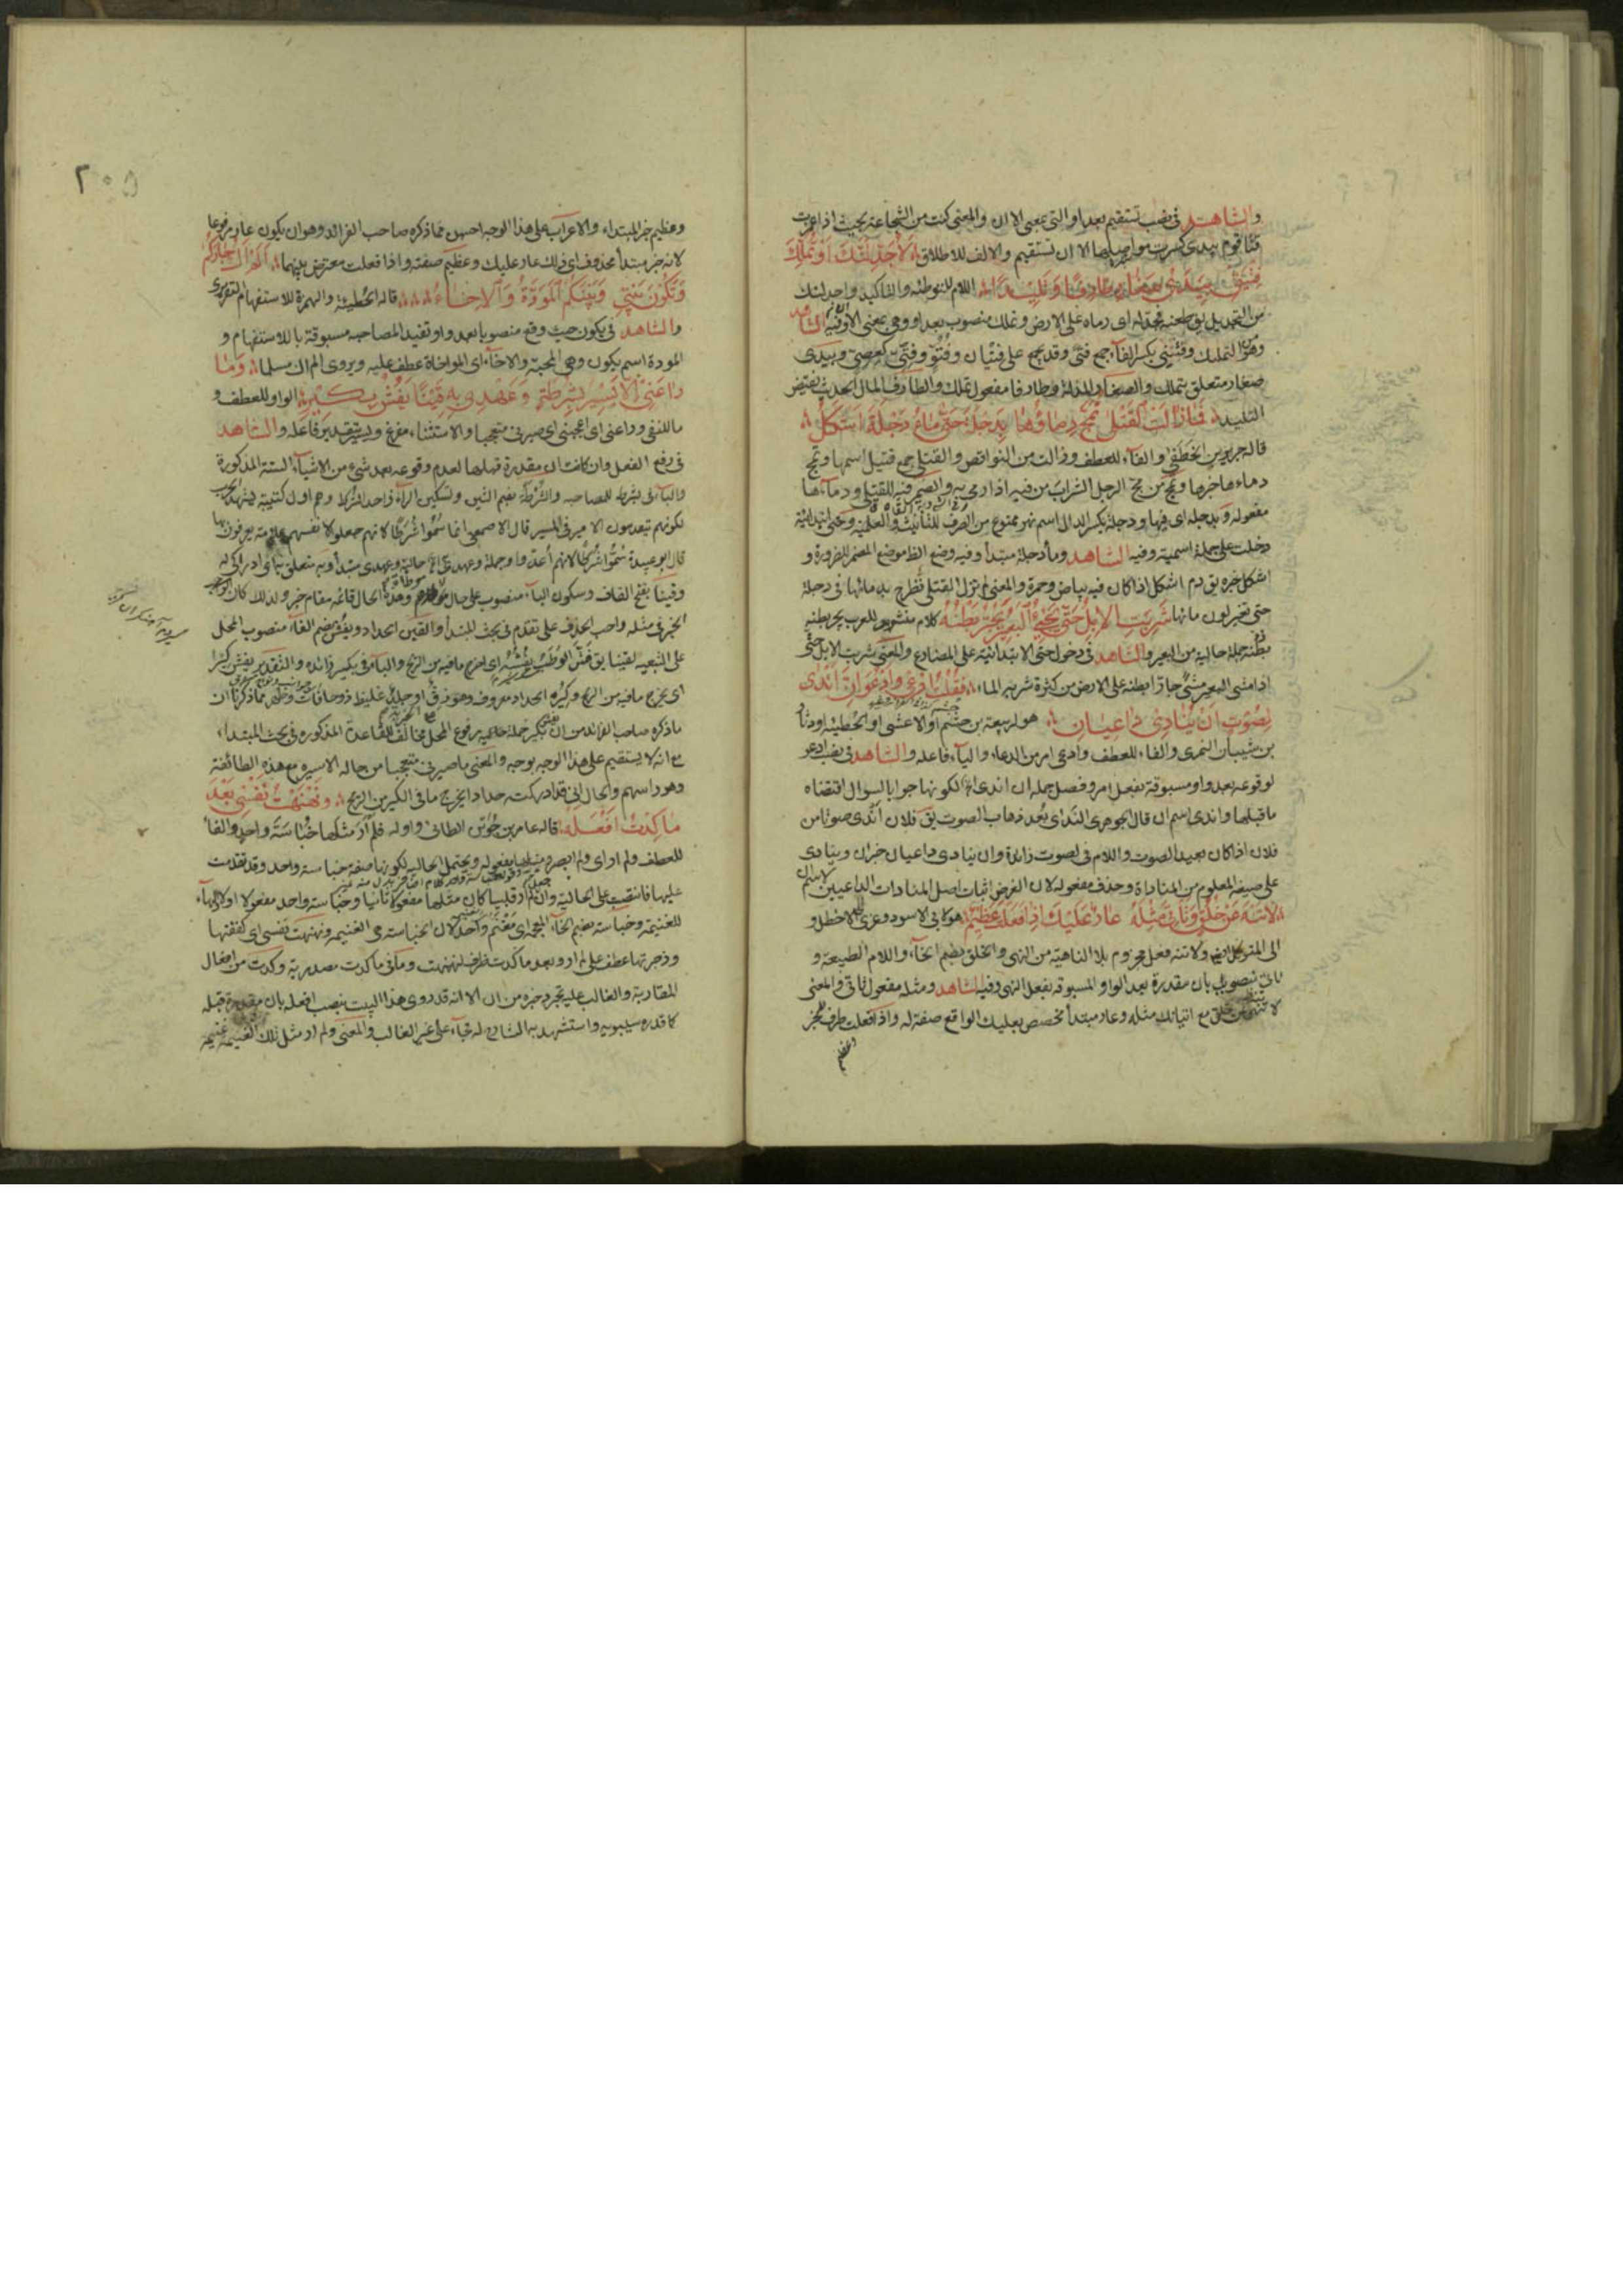 والشاهد في نصب تستقيم بعد او التي بمعنى الا ان والمعنى كنت من الشجاعة بحيث اذا غمزت
قناة قوم بيدى كسرت مواصلها الا ان تستقيم والالف للاطلاق لأجدلنك او تملك
فتيتى بيدى صغار طارفا وتليدا اللام للتوطئة والتاكيد واجدلنك
من التجديل يق طعنه فجدله اى رماه على الارض وتملك منصوب بعد او وهى بمعنى الا وفيه الشاهد
وهو من التملك وفتيتى بكسر الفاء جمع فتى وقد يجمع على فتيان وفتو وفتى كعصى وبيدى
صغار متعلق بتملك والصغار المذلة وطارفا مفعول تملك والطارف المال الحديث نقيض
التليد فما زالت القتلى تمج دماؤها بدجلة حتى ماء دجلة اشكل
قاله جرير بن الخطفى والفاء للعطف وزالت من النواقص والقتلى جمع قتيل اسمها وتمج
دماءها خبرها وتمج من مج الرجل الشراب من فيه اذا رمى به والضمير فيه للقتلى ودماءها
مفعوله وبدجلة اى فيها ودجلة بكسر الدال اسم نهر ممنوع من الصرف للتانيث والعلمية وحتى ابتدائية
دخلت على جملة اسمية وفيه الشاهد وماء دجلة مبتدأ وفيه وضع الظ موضع المضمر للضرورة و
اشكل خبره يق دم اشكل اذا كان فيه بياض وحمرة والمعنى لم يزل القتلى تطرح بدمائها في دجلة
حتى تغير لون مائها شربت الابل حتى يجيئ البعير يجر بطنه كلام منثور للعرب يجر بطنه
بطنه جملة حالية من البعير والشاهد في دخول حتى الابتدائية على المضارع والمعنى شربت الابل حتى
اذا مشى البعير مشى جارا بطنه على الارض من كثرة شربه الماء فقلت ادعى وادعو ان اندى
لصوت ان ينادى داعيان هو لربيعة بن جشم او الاعشى او الحطيئة او دثار
بن شيبان النمرى والفاء للعطف وادعى امر من الدعاء والياء فاعله والشاهد في نصب ادعو
لوقوعه بعد واو مسبوقة بفعل امر وفصل جملة ان اندى اه لكونها جوابا لسوال اقتضاه
ما قبلها واندى اسم ان قال الجوهرى الندى بعد ذهاب الصوت يق فلان اندى صوتا من
فلان اذا كان بعيد الصوت واللام في لصوت زائدة وان ينادى داعيان خبران وينادى
على صيغة المعلوم من المناداة وحذف مفعوله لان الغرض اثبات اصل المنادات الداعيين
لا تنه عن خلق وتاتى مثله عار عليك اذا فعلت عظيم هو لابى الاسود وعزى للاخطل و
الى المتوكل ايضا ولا تنه فعل مجزوم بلا الناهية من النهى والخلق بضم الخاء واللام الطبيعة و
تاتى منصوب بان مقدرة بعد الواو المسبوقة بفعل النهى وفيه الشاهد ومثله مفعول تاتى والمعنى
لا تنهى عن خلق مع اتيانك مثله وعار مبتدأ مخصص بعليك الواقع صفة له واذا فعلت ظرف للخبر
وعظيم
٢٠٥
وعظيم خبر المبتداء والاعراب على هذا الوجه احسن مما ذكره صاحب الفرائد وهو ان يكون عار مرفوعا
لانه خبر مبتدأ محذوف اى ذلك عار عليك وعظيم صفته واذا فعلت معترض بينهما الم اك جاركم
وتكون بيني وبينكم المودة والاخاء قاله الحطيئة والهمزة للاستفهام التقريرى
والشاهد في يكون حيث وقع منصوبا بعد واو تفيد المصاحبة مسبوقة بالاستفهام و
المودة اسم يكون وهى المحبة والاخاء اى المواخاة عطف عليه ويروى الم اك مسلما وما
راعنى الا يسير بشرطة وعهدى به قينا يفش بكير الواو للعطف و
ما للنفى وراعنى اى اعجبنى اى صيرنى متعجبا والاستثناء مفرغ ويسير بتقدير فاعله والشاهد
في رفع الفعل وان كانت ان مقدرة قبلها لعدم وقوعه بعد شيء من الاشياء الستة المذكورة
والباء في بشرطة للمصاحبة والشرطة بضم الشين وسكين الراء واحد الشرط وهم اول كتيبة يشهد الحرب
لكونهم يتقدمون الامير في المسير قال الاصمعى انما سموا شرطا لانهم جعلوا لانفسهم علامة يعرفون بها
قال ابو عبيدة سموا شرطا لانهم اعدوا وجملة وعهدى اه حالية وعهدى مبتدأ وبه متعلق به اى ادراكى له
وقينا بفتح القاف وسكون الياء منصوب على حال وهذه الحال قائمة مقام خبر ولذلك كان
الخبر في مثله واجب الحذف على تقدم في بحث المبتدأ والقين الحداد ويفش بضم الفاء منصوب المحل
على التبعية لقينا يق فش الوطب يفشه اى اخرج ما فيه من الريح والباء في بكير زائدة والتقدير يفش كيرا
اى يخرج ما فيه من الريح وكيره الحداد معروف وهو زق او جلد غليظ ذو حافات وظهر مما ذكرنا ان
ما ذكره صاحب الفرائد من ان يفش بكير جملة حالية مرفوع المحل مخالف للقاعدة المذكورة في بحث المبتداء
مع انه لا يستقيم على هذا الوجه بوجه والمعنى ما صيرنى متعجبا من حاله الا سيره مع هذه الطائفة
وهو راسهم والحال انى قد ادركته حدادا يخرج ما في الكير من الريح ونهنهت نفسى بعد
ما كدت افعله قاله عامر بن جوين الطائى واوله فلم ار مثلها خباسة واحد والفاء
للعطف ولم ار اى ولم ابصر ومثلها مفعوله ويحتمل الحالية لكونها صفة خباسة واحد وقد تقدمت
عليها فانتصب على الحالية وان جعل لم ار قلبيا كان مثلها مفعولا ثانيا وخباسة واحد مفعولا اولا والهاء
للغنيمة وخباسة بضم الخاء المعجمة اى مغنم واحد لان الخباسة هى الغنيمة ونهنهت نفسى اى كففتها
وزجرتها عطف على لم ار وبعد ما كدت ظرف لنهنهت وما في ما كدت مصدرية وكدت من افعال
المقاربة والغالب عليه تجرد خبره من ان الا انه قد روى هذا البيت بنصب افعله بان مقدرة قبله
كما قدره سيبويه واستشهد به الشارح له بناء على غير الغالب والمعنى ولم ار مثل تلك الغنيمة غنيمة